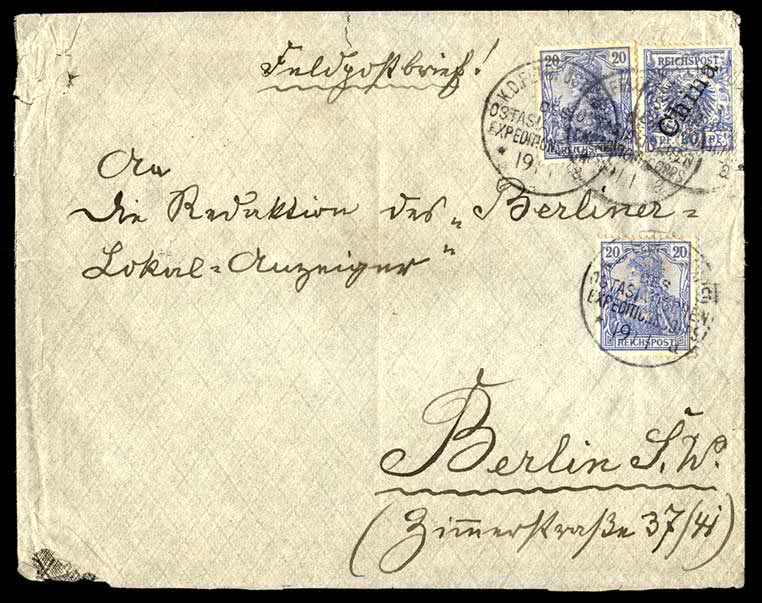 Feldpostbrief!
20 20
REICHSPOST
REICHSPOST
China
PF. 20 PF.
K.D.F
OSTASI
EXPEDITION
* 19
An
Die Redaktion des „Berliner-
Lokal-Anzeiger"
20 20
REICHSPOST
DES
OSTASI
EXPEDITION
* 19
Berlin S.W.
(Zimmerstraße 37/41)